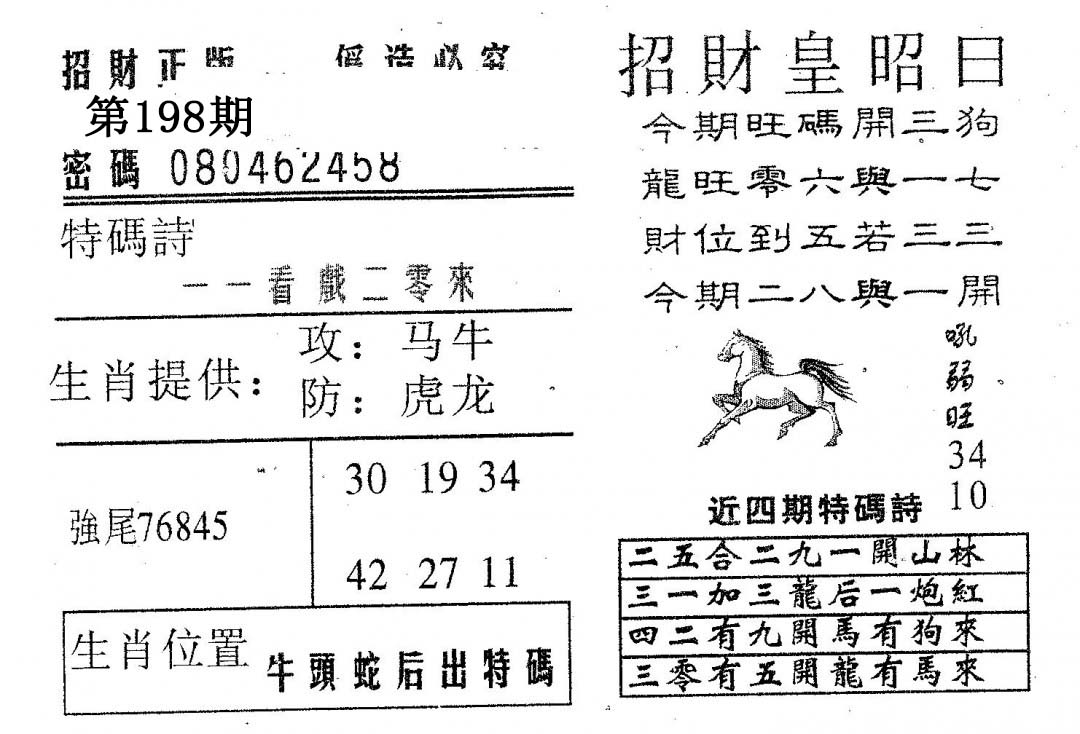 招財正版 偽造必究
第198期
密碼 080462458
特碼詩
一一看戲二零來
生肖提供：
攻：马牛
防：虎龙
強尾76845
30 19 34
42 27 11
生肖位置 牛頭蛇后出特碼
招財皇昭曰
今期旺碼開三狗
龍旺零六與一七
財位到五若三三
今期二八與一開
吼
弱
旺
34
10
近四期特碼詩
二五合二九一開山林
三一加三龍后一炮紅
四二有九開馬有狗來
三零有五開龍有馬來